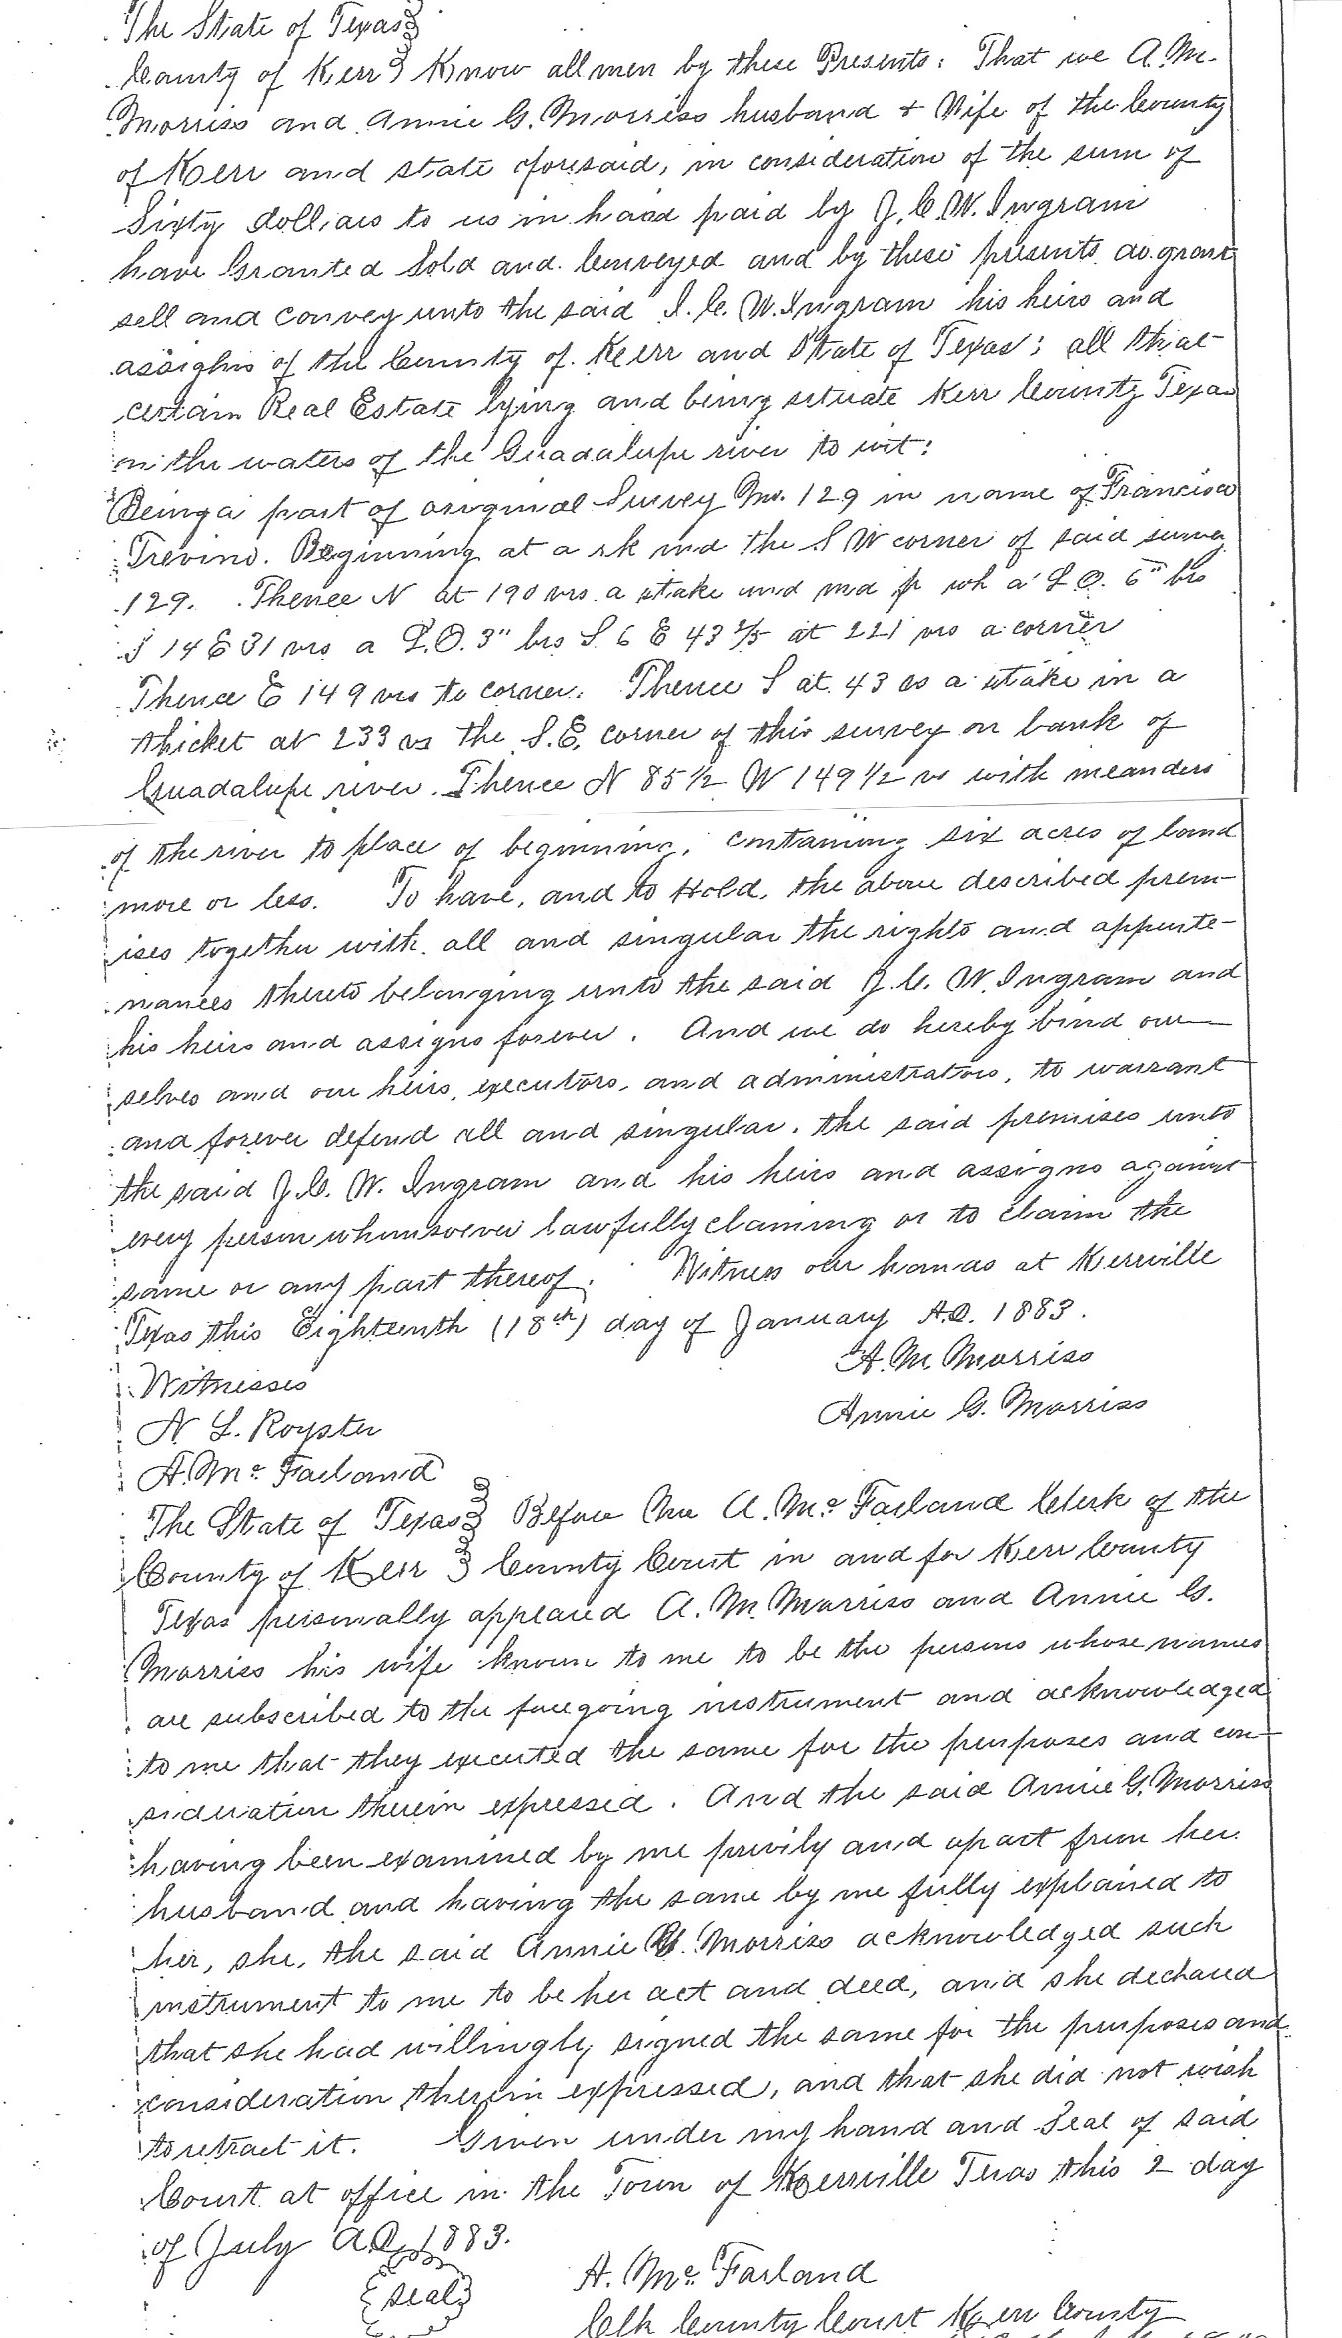 The State of Texas
County of Kerr Know all men by these Presents: That we A. M.
Morriss and Annie G. Morriss husband & Wife of the County
of Kerr and state aforesaid, in consideration of the sum of
Sixty dollars to us in hand paid by J. C. W. Ingram
have Granted Sold and Conveyed and by these presents do grant
sell and convey unto the said J. C. W. Ingram his heirs and
assighs of the County of Kerr and State of Texas; all that
certain Real Estate lying and being situate Kerr County Texas
on the waters of the Guadalupe river to wit:
Being a part of original Survey No. 129 in name of Francisco
Trevino. Beginning at a rk md the S W corner of said survey
129. Thence N at 190 vrs a stake and md fr wh a L.O. 6" brs
S 14 E 31 vrs a L.O. 3" brs S 6 E 43 2/5 at 221 vrs a corner
Thence E 149 vrs to corner. Thence S at 43 vs a stake in a
thicket at 233 vs the S.E. corner of this survey on bank of
Guadalupe river. Thence N 85 1/2 W 149 1/2 vs with meanders
of the river to place of beginning, containing six acres of land
more or less. To have, and to Hold, the above described prem-
ises together with all and singular the rights and appurte-
nances thereto belonging unto the said J. C. W. Ingram and
his heirs and assigns forever. And we do hereby bind our-
selves and our heirs, executors, and administrators, to warrant
and forever defend all and singular, the said premises unto
the said J. C. W. Ingram and his heirs and assigns against
every person whomsoever lawfully claiming or to claim the
same or any part thereof. Witness our hands at Kerrville
Texas this Eighteenth (18th) day of January A.D. 1883.
A. M. Morriss
Witnesses
Annie G. Morriss
N. L. Royster
A. Mc Farland
The State of Texas Before Me A. Mc Farland Clerk of the
County of Kerr County Court in and for Kerr County
Texas personally appeared A. M. Morriss and Annie G.
Morriss his wife known to me to be the persons whose names
are subscribed to the foregoing instrument and acknowledged
to me that they executed the same for the purposes and con-
sideration therein expressed. And the said Annie G. Morriss
having been examined by me privily and apart from her
husband and having the same by me fully explained to
her, she, the said Annie G. Morriss acknowledged such
instrument to me to be her act and deed, and she declared
that she had willingly signed the same for the purposes and
consideration therein expressed, and that she did not wish
to retract it. Given under my hand and Seal of said
Court at office in the Town of Kerrville Texas this 2 day
of July A.D. 1883.
A. Mc Farland
Seal
Clk County Court Kerr County